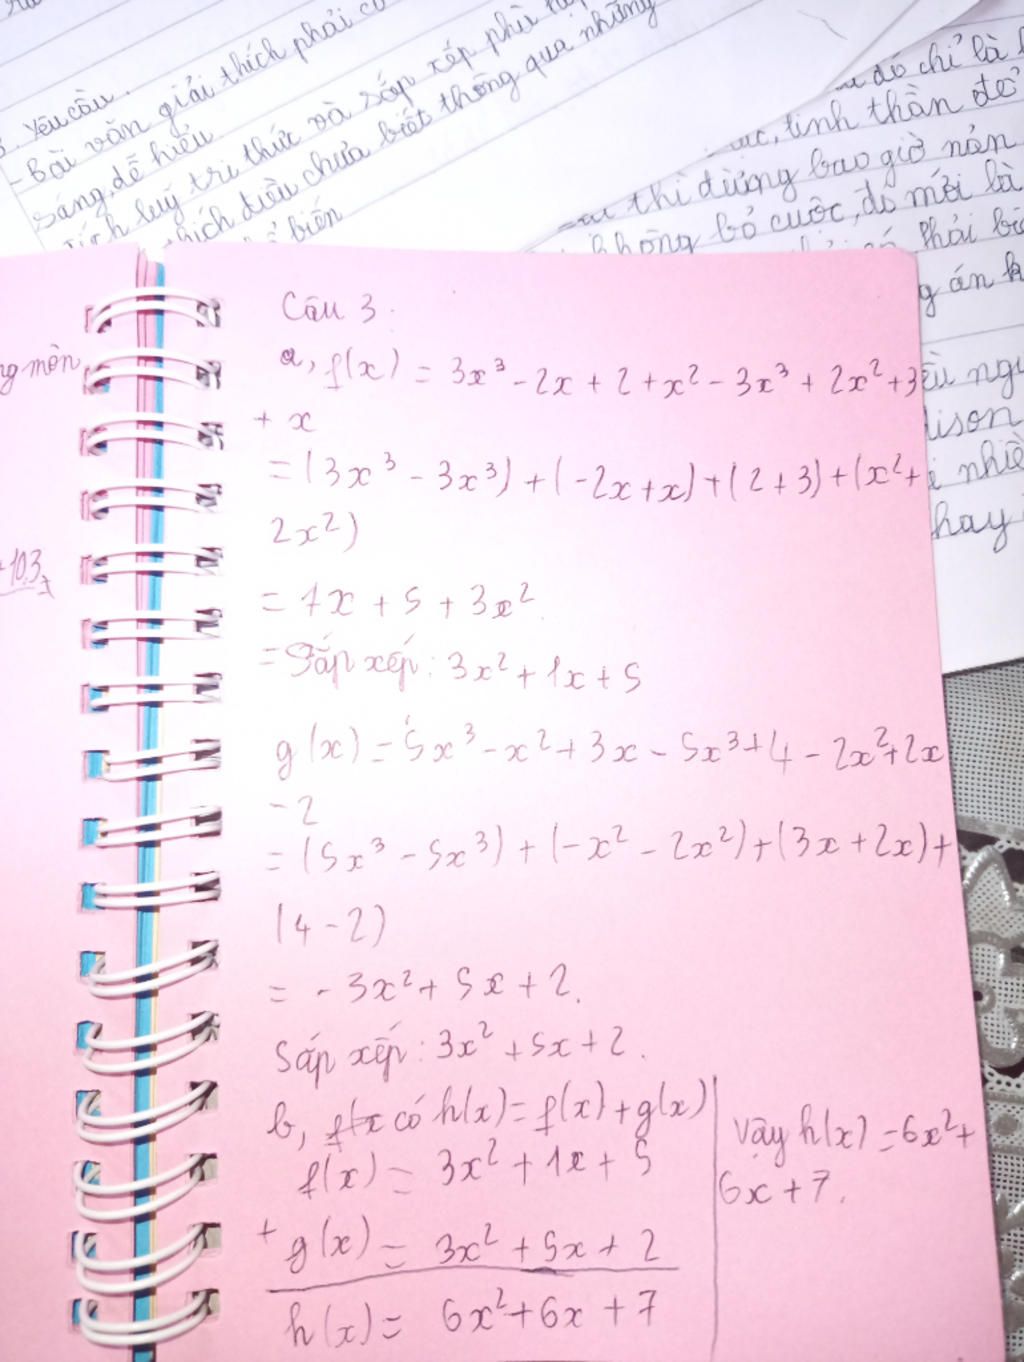 3. Yêu cầu.
- Bài văn giải thích phải có
sáng, dễ hiểu
tích luỹ tri thức và sắp xếp phù hợp
thích điều chưa biết thông qua những
phổ biến
đó chỉ là
tinh thần để
thì đừng bao giờ nản
không bỏ cuộc, đó mới là
phải
án
nhiề
hay
ng môn
10.3
Câu 3.
a, f(x) = 3x³ - 2x + 2 + x² - 3x³ + 2x² + 3
+ x
= (3x³ - 3x³) + (-2x + x) + (2 + 3) + (x² +
2x²)
= 1x + 5 + 3x².
= Sắp xếp: 3x² + 1x + 5
g(x) = 5x³ - x² + 3x - 5x³ + 4 - 2x² + 2x
- 2
= (5x³ - 5x³) + (-x² - 2x²) + (3x + 2x) +
(4 - 2)
= - 3x² + 5x + 2.
Sắp xếp: 3x² + 5x + 2.
b, có h(x) = f(x) + g(x)
f(x) = 3x² + 1x + 5
+ g(x) = 3x² + 5x + 2
h(x) = 6x² + 6x + 7
Vậy h(x) = 6x² +
6x + 7.